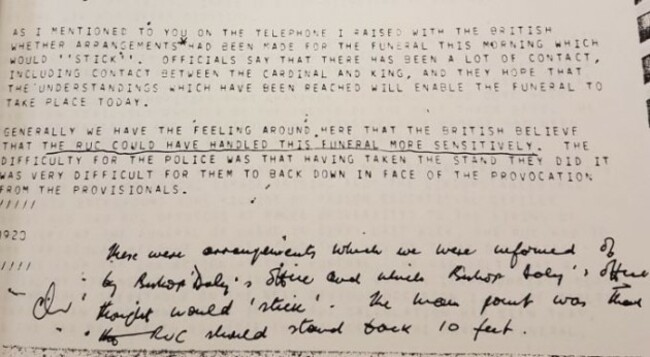 AS I MENTIONED TO YOU ON THE TELEPHONE I RAISED WITH THE BRITISH
WHETHER ARRANGEMENTS HAD BEEN MADE FOR THE FUNERAL THIS MORNING WHICH
WOULD ''STICK''. OFFICIALS SAY THAT THERE HAS BEEN A LOT OF CONTACT,
INCLUDING CONTACT BETWEEN THE CARDINAL AND KING, AND THEY HOPE THAT
THE UNDERSTANDINGS WHICH HAVE BEEN REACHED WILL ENABLE THE FUNERAL TO
TAKE PLACE TODAY.
GENERALLY WE HAVE THE FEELING AROUND HERE THAT THE BRITISH BELIEVE
THAT THE RUC COULD HAVE HANDLED THIS FUNERAL MORE SENSITIVELY. THE
DIFFICULTY FOR THE POLICE WAS THAT HAVING TAKEN THE STAND THEY DID IT
WAS VERY DIFFICULT FOR THEM TO BACK DOWN IN FACE OF THE PROVOCATION
FROM THE PROVISIONALS.
/////
There were arrangements which we were informed of
////
by Bishop Daly's office and which Bishop Daly's office
thought would 'stick'. The main point was that
RUC should stand back 10 feet.